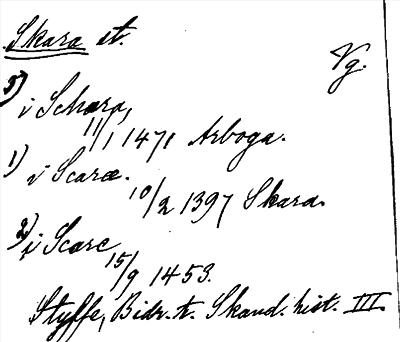 Skara st.
Vg.
3) i Schara,
11/1 1471 Arboga.
1) i Scaræ.
10/2 1397 Skara.
2) i Scare
15/9 1453.
Styffe, Bidr. t. Skand. hist. III.